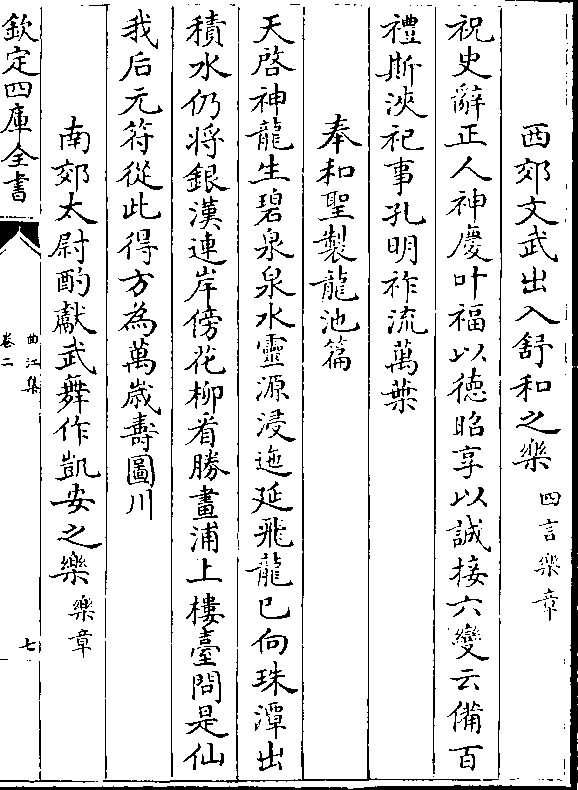 西郊文武出入舒和之樂 四言樂章
祝史辭正人神慶叶福以德昭享以誠接六變云備百
禮斯浹祀事孔明祚流萬葉
奉和聖製龍池篇
天啓神龍生碧泉泉水靈源浸迤延飛龍已向珠潭出
積水仍將銀漢連岸傍花柳看勝畫浦上樓臺問是仙
我后元符從此得方為萬歲壽圖川
南郊太尉酌獻武舞作凱安之樂 樂章
欽定四庫全書
曲江集
卷二
七